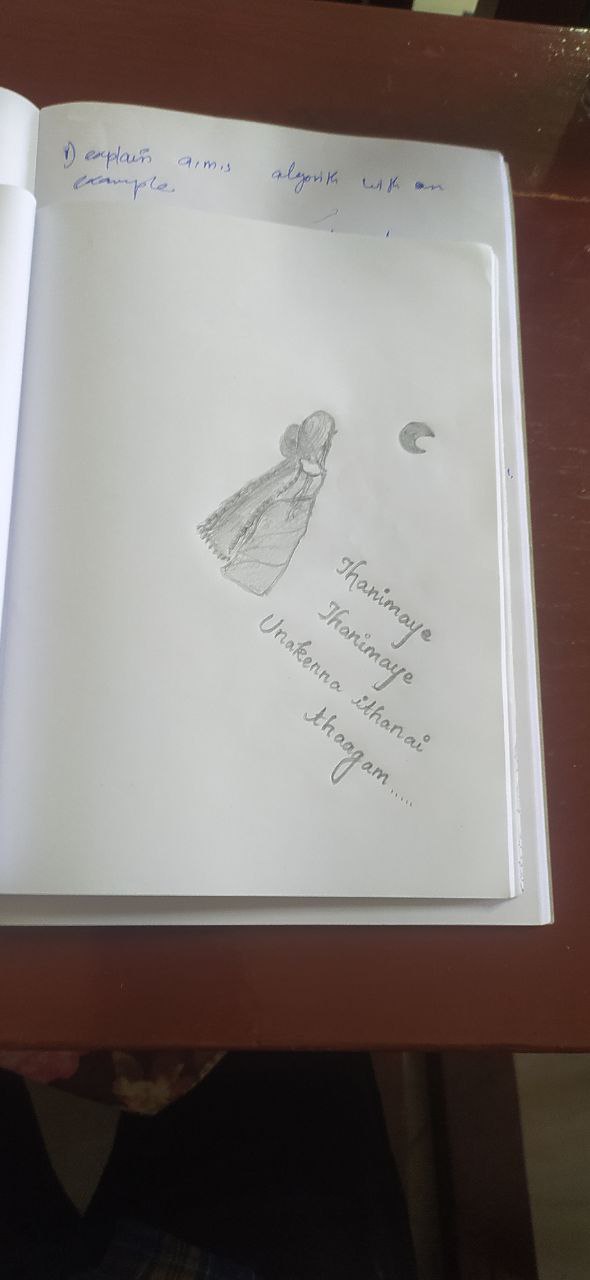 1) explain a.m.s algorith with an
example
Thanimaye
Thanimaye
Unakenna ithanai
thaagam.....